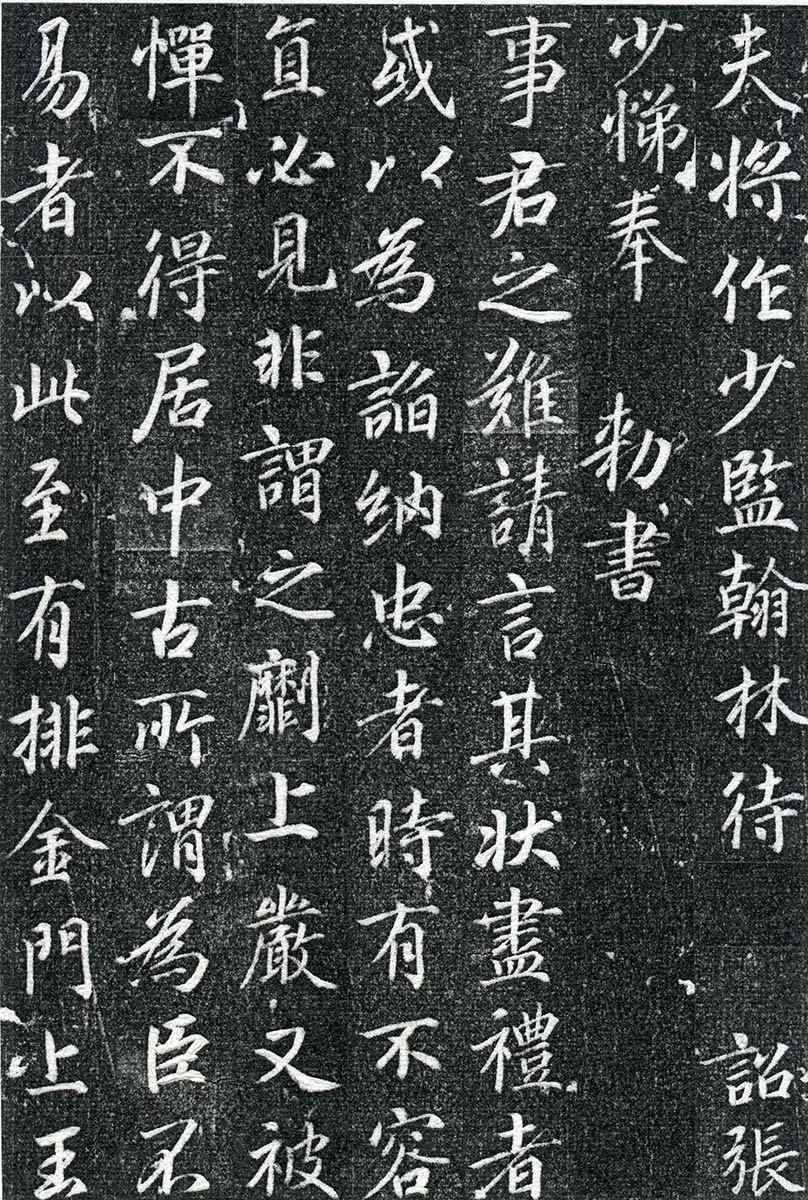 夫將作少監翰林待詔張
少悌奉敕書
事君之難請言其狀盡禮者
或以為諂納忠者時有不容
直必見非謂之劘上嚴又被
憚不得居中古所謂為臣不
易者以此至有排金門上玉